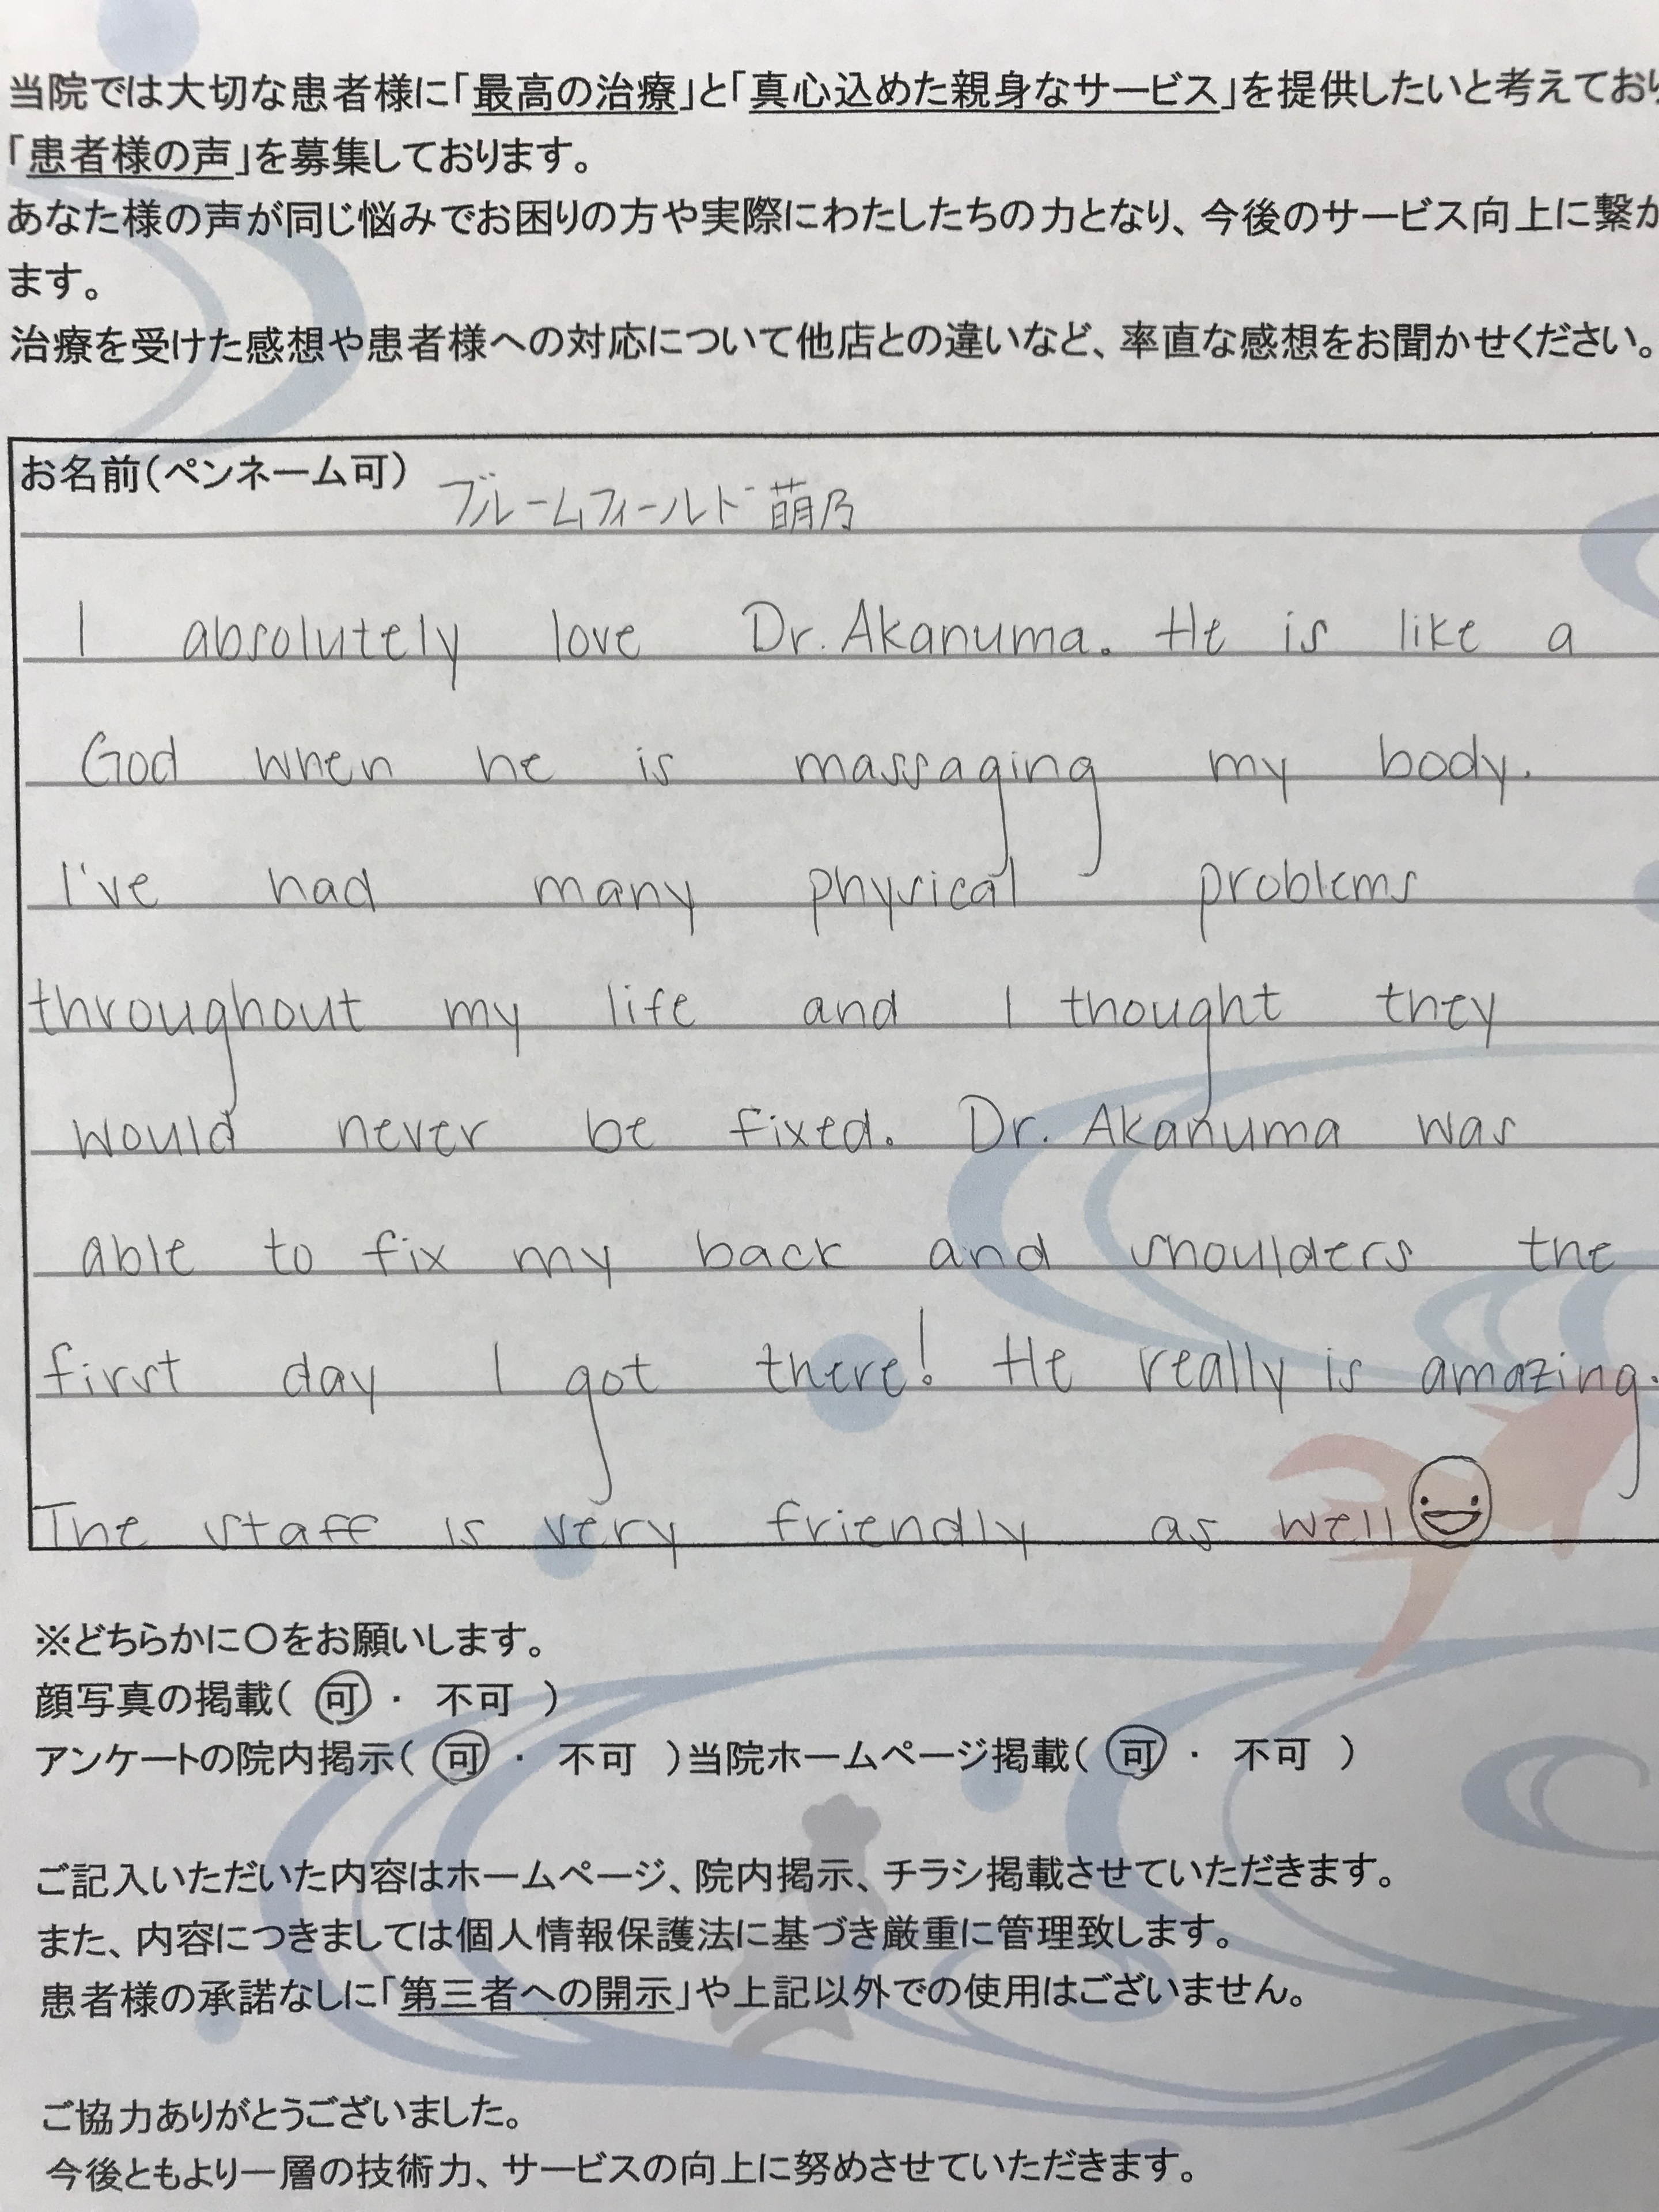 当院では大切な患者様に「最高の治療」と「真心込めた親身なサービス」を提供したいと考えており
「患者様の声」を募集しております。
あなた様の声が同じ悩みでお困りの方や実際にわたしたちの力となり、今後のサービス向上に繋が
ます。
治療を受けた感想や患者様への対応について他店との違いなど、率直な感想をお聞かせください。
お名前(ペンネーム可) ブルームフィールド 萌乃
I absolutely love Dr. Akanuma. He is like a
God when he is massaging my body.
I've had many physical problems
throughout my life and I thought they
would never be fixed. Dr. Akanuma was
able to fix my back and shoulders the
first day I got there! He really is amazing.
The staff is very friendly as well
※どちらかに○をお願いします。
顔写真の掲載( 可 ・ 不可 )
アンケートの院内掲示( 可 ・ 不可 )当院ホームページ掲載( 可 ・ 不可 )
ご記入いただいた内容はホームページ、院内掲示、チラシ掲載させていただきます。
また、内容につきましては個人情報保護法に基づき厳重に管理致します。
患者様の承諾なしに「第三者への開示」や上記以外での使用はございません。
ご協力ありがとうございました。
今後ともより一層の技術力、サービスの向上に努めさせていただきます。